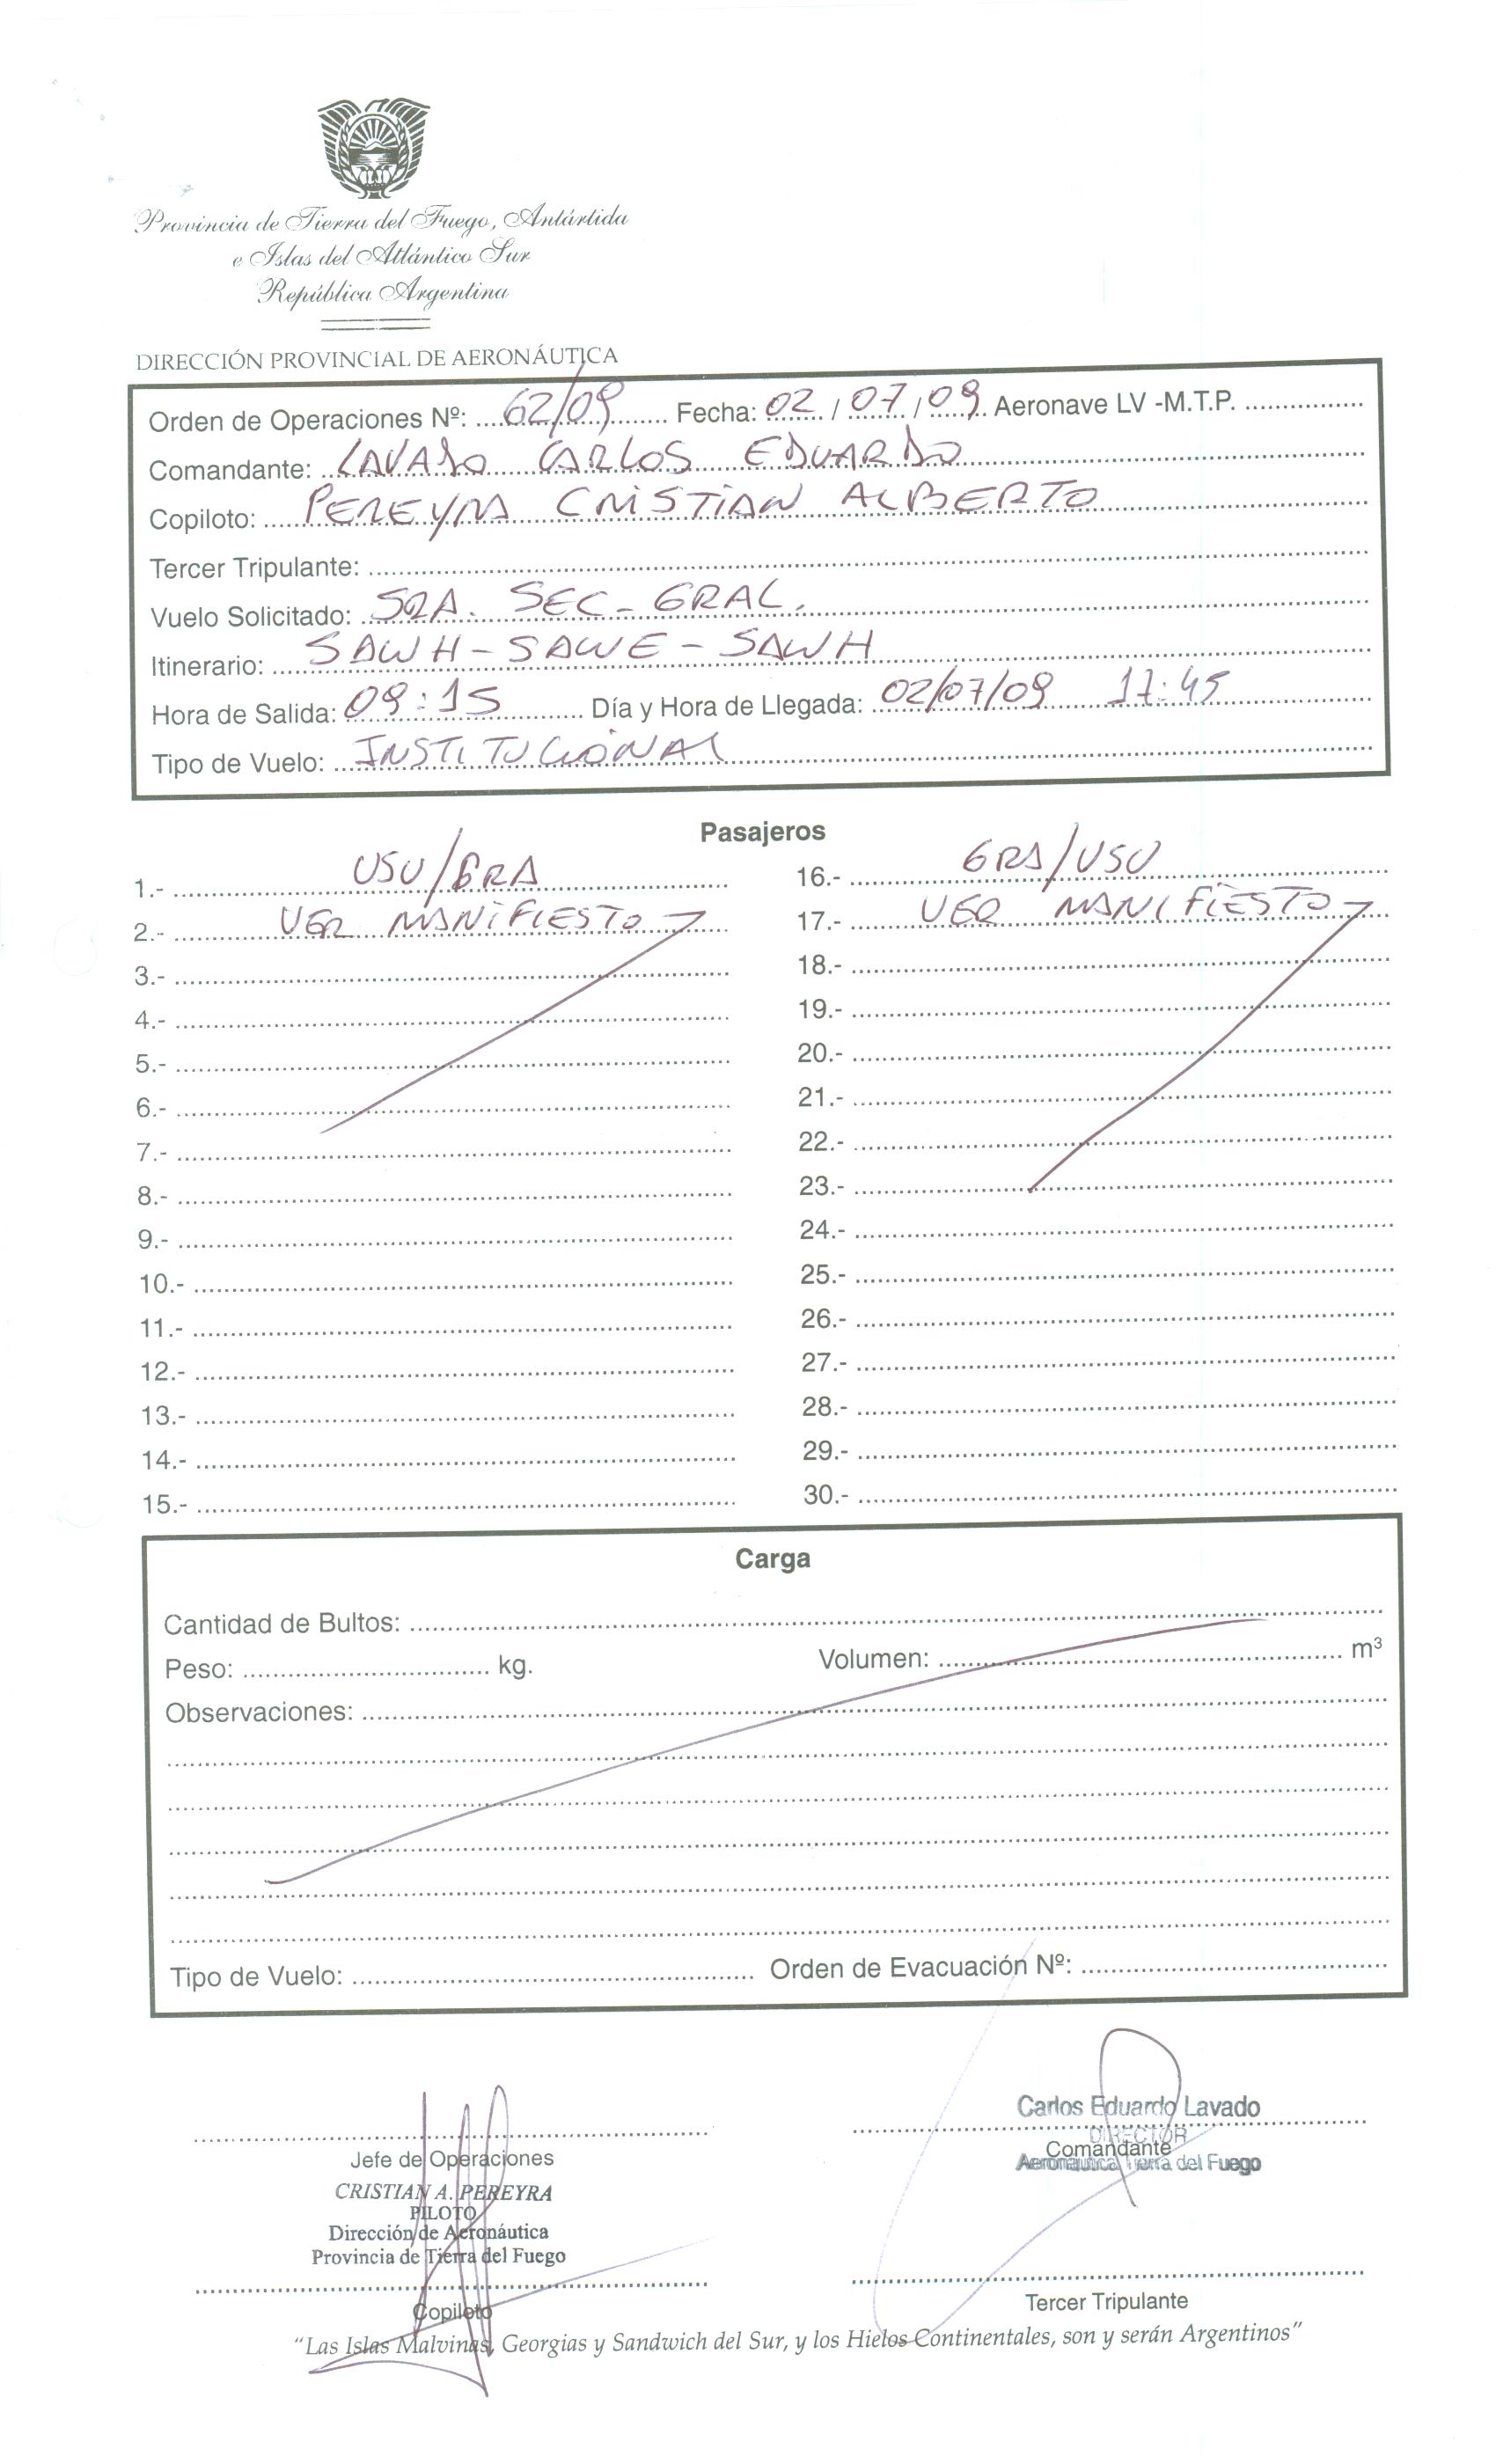 Provincia de Tierra del Fuego, Antártida
e Islas del Atlántico Sur
República Argentina
DIRECCIÓN PROVINCIAL DE AERONÁUTICA
Orden de Operaciones Nº: 62/09 Fecha: 02 / 07 / 09 Aeronave LV -M.T.P.
Comandante: LAVADO CARLOS EDUARDO
Copiloto: PEREYRA CRISTIAN ALBERTO
Tercer Tripulante:
Vuelo Solicitado: SRA. SEC- GRAL.
Itinerario: SAWH - SAWE - SAWH
Hora de Salida: 09:15 Día y Hora de Llegada: 02/07/09 17:45
Tipo de Vuelo: INSTITUCIONAL
Pasajeros
1.- USU/GRA
2.- VER MANIFIESTO
3.-
4.-
5.-
6.-
7.-
8.-
9.-
10.-
11.-
12.-
13.-
14.-
15.-
16.- GRA/USU
17.- VER MANIFIESTO
18.-
19.-
20.-
21.-
22.-
23.-
24.-
25.-
26.-
27.-
28.-
29.-
30.-
Carga
Cantidad de Bultos:
Peso: kg. Volumen: m³
Observaciones:
Tipo de Vuelo: Orden de Evacuación Nº:
Jefe de Operaciones
CRISTIAN A. PEREYRA
PILOTO
Dirección de Aeronáutica
Provincia de Tierra del Fuego
Copiloto
Carlos Eduardo Lavado
DIRECTOR
Comandante
Aeronautica Tierra del Fuego
Tercer Tripulante
"Las Islas Malvinas, Georgias y Sandwich del Sur, y los Hielos Continentales, son y serán Argentinos"